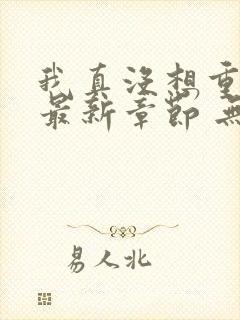 我真没想重
最新章节 无
易人北